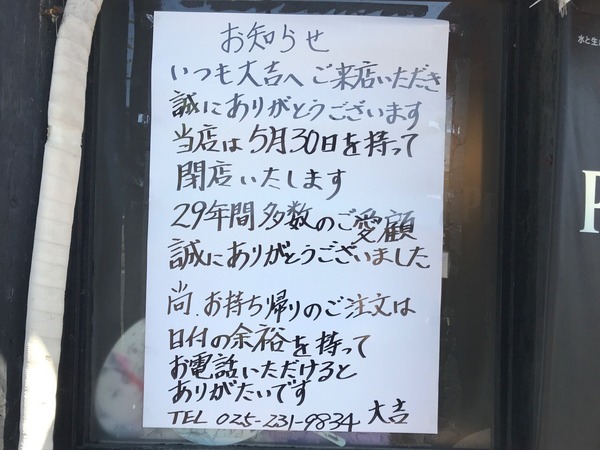 お知らせ
いつも大吉へご来店いただき
誠にありがとうございます
当店は5月30日を持って
閉店いたします
29年間多数のご愛顧
誠にありがとうございました
尚、お持ち帰りのご注文は
日付の余裕を持って
お電話いただけると
ありがたいです
TEL 025-231-9834 大吉
水と生
P